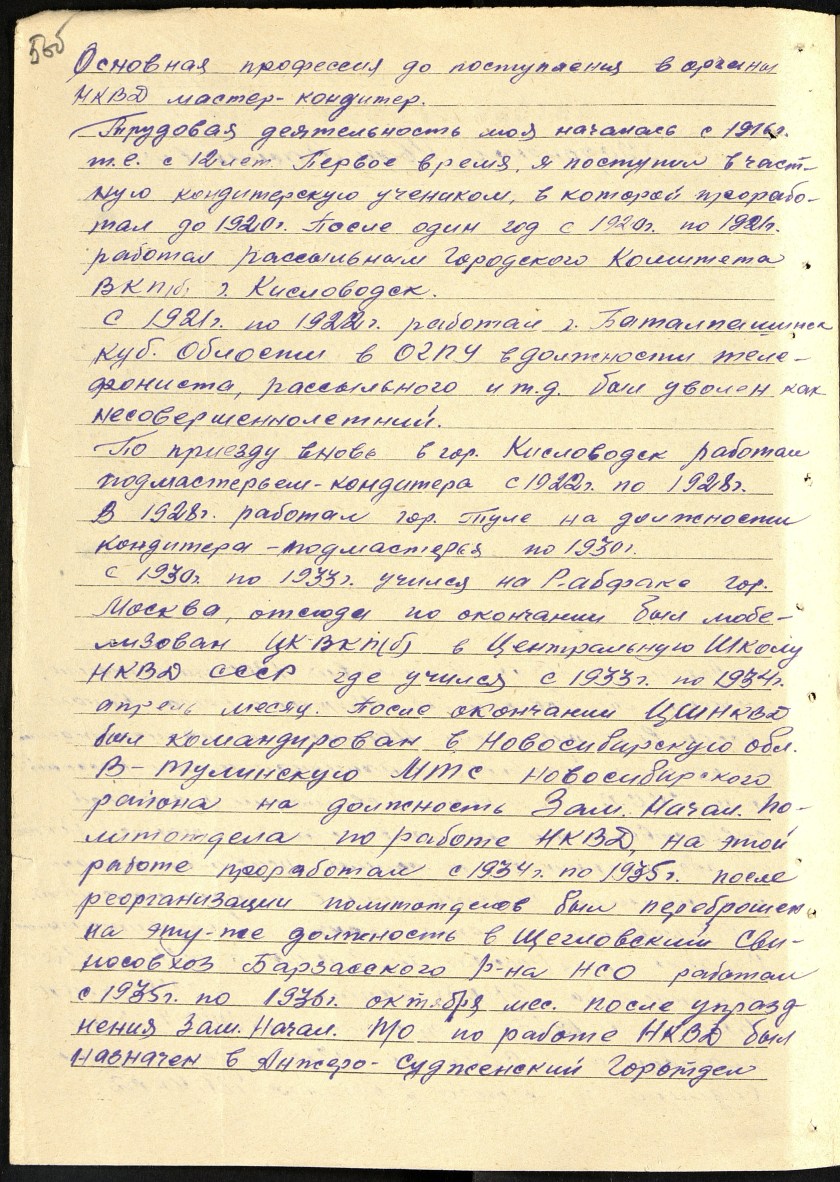 Основная профессия до поступления в органы
НКВД мастер-кондитер.
Трудовая деятельность моя началась с 1916г.
т.е. с 12 лет. Первое время, я поступил в част-
ную кондитерскую учеником, в которой прорабо-
тал до 1920г. После один год с 1920г. по 1921г.
работал рассыльным Городского Комитета
ВКП(б) г. Кисловодск.
С 1921г. по 1922г. работал г. Баталпашинск
Куб. Области в ОГПУ в должности теле-
фониста, рассыльного и т.д. был уволен как
несовершеннолетний.
По приезду вновь в гор. Кисловодск работал
подмастерьем-кондитера с 1922г. по 1928г.
В 1928г. работал гор. Туле на должности
кондитера-подмастерья по 1930г.
с 1930г. по 1933г. учился на Рабфаке гор.
Москва, отсюда по окончании был мобе-
лизован ЦКВКП(б) в Центральную Школу
НКВД СССР где учился с 1933г. по 1934г.
апрель месяц. После окончании ЦШНКВД
был командирован в Новосибирскую обл.
В-Тулинскую МТС Новосибирского
района на должность Зам. Начал. По-
литотдела по работе НКВД, на этой
работе проработал с 1934г. по 1935г. после
реорганизации политотделов был переброшен
на эту-же должность в Щегловский Сви-
носовхоз Барзасского Р-на НСО работал
с 1935г. по 1936г. октября мес. после упразд
нения Зам. Начал. ПО по работе НКВД был
назначен в Анжеро-Судженский Горотдел